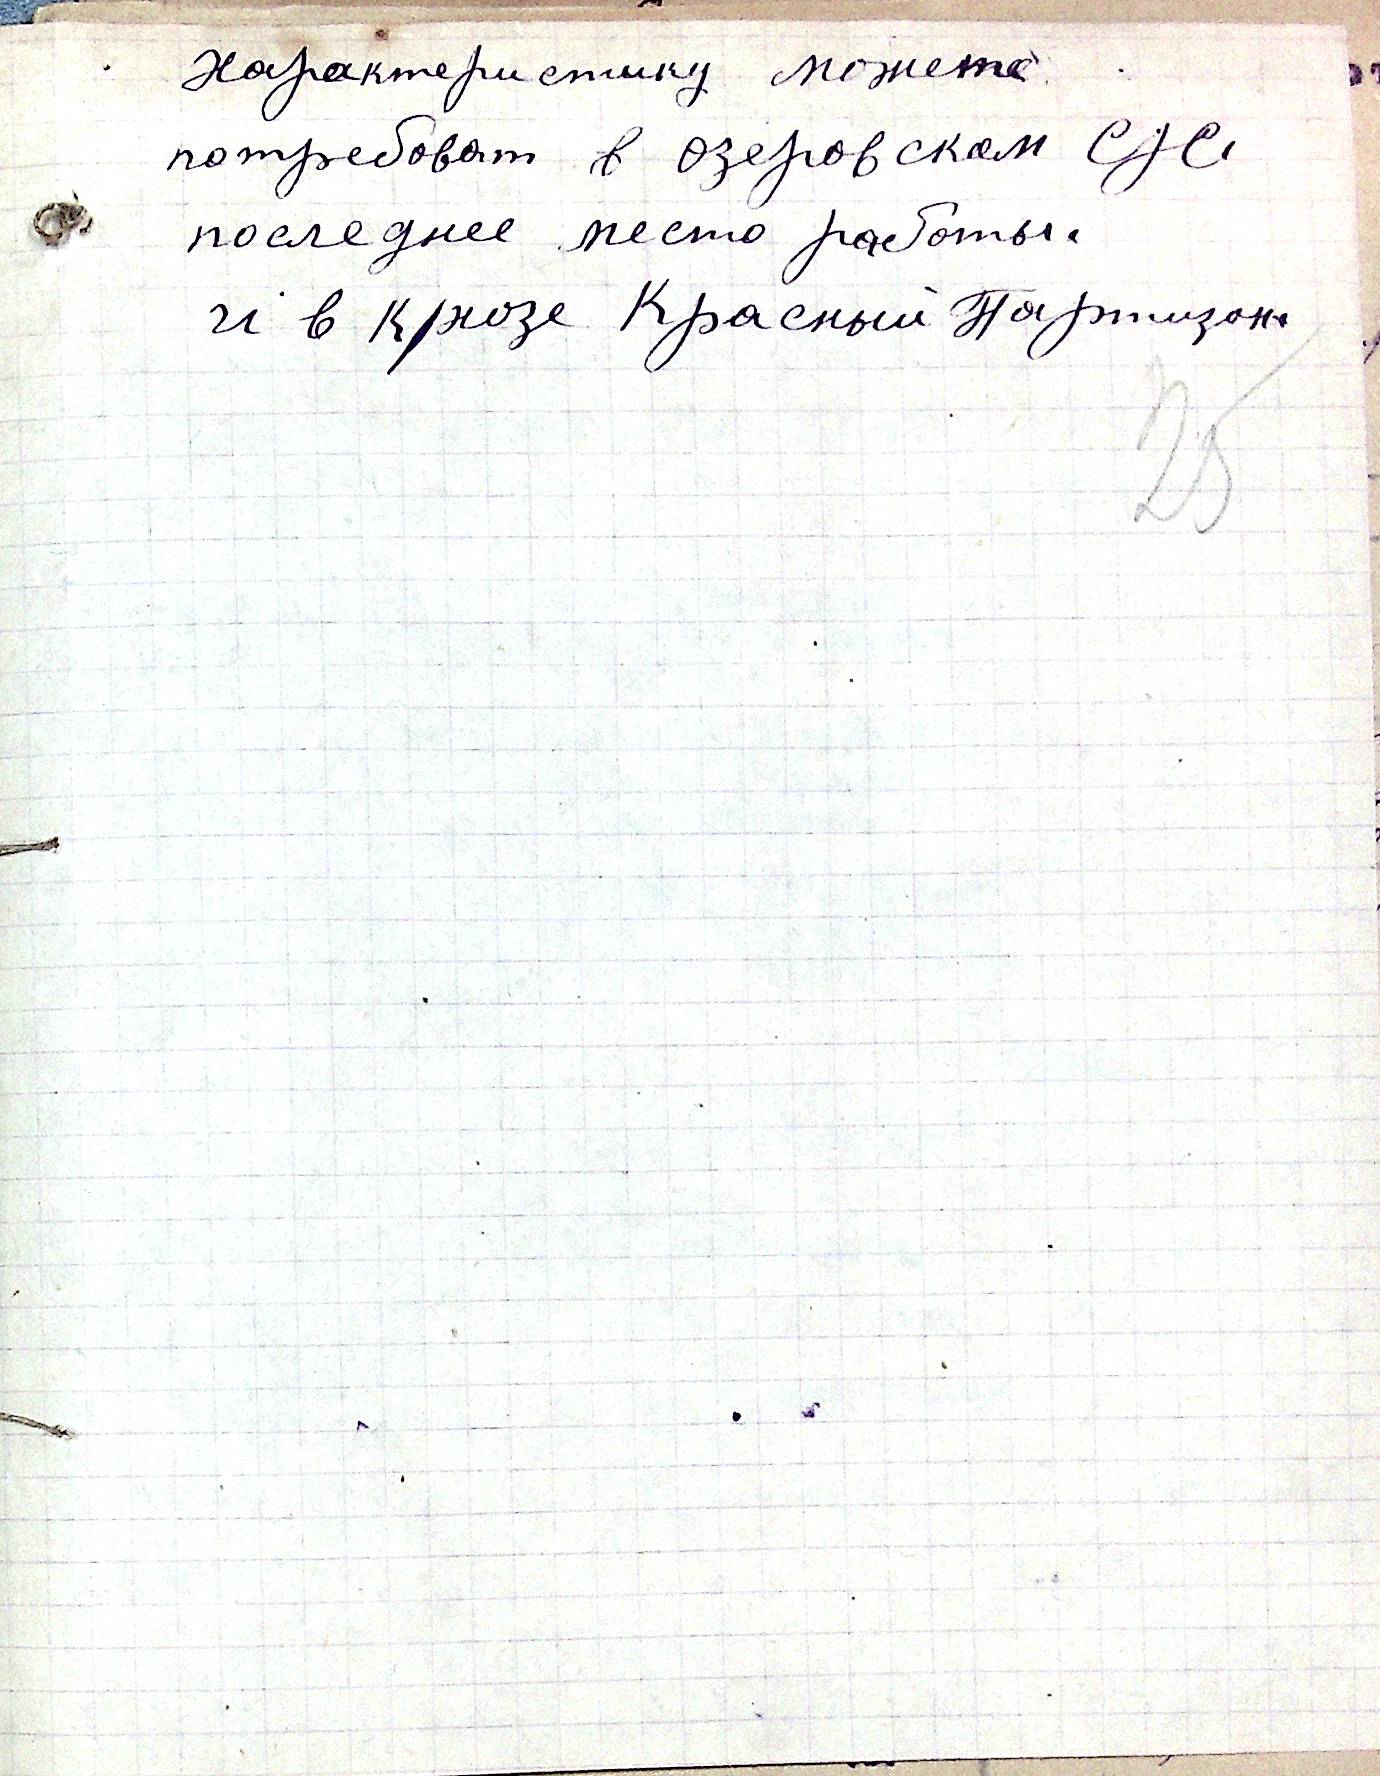 Характеристику можете
потребоват в озеровском С/С.
последнее место работы.
и в к/хозе Красный Партизан.
25